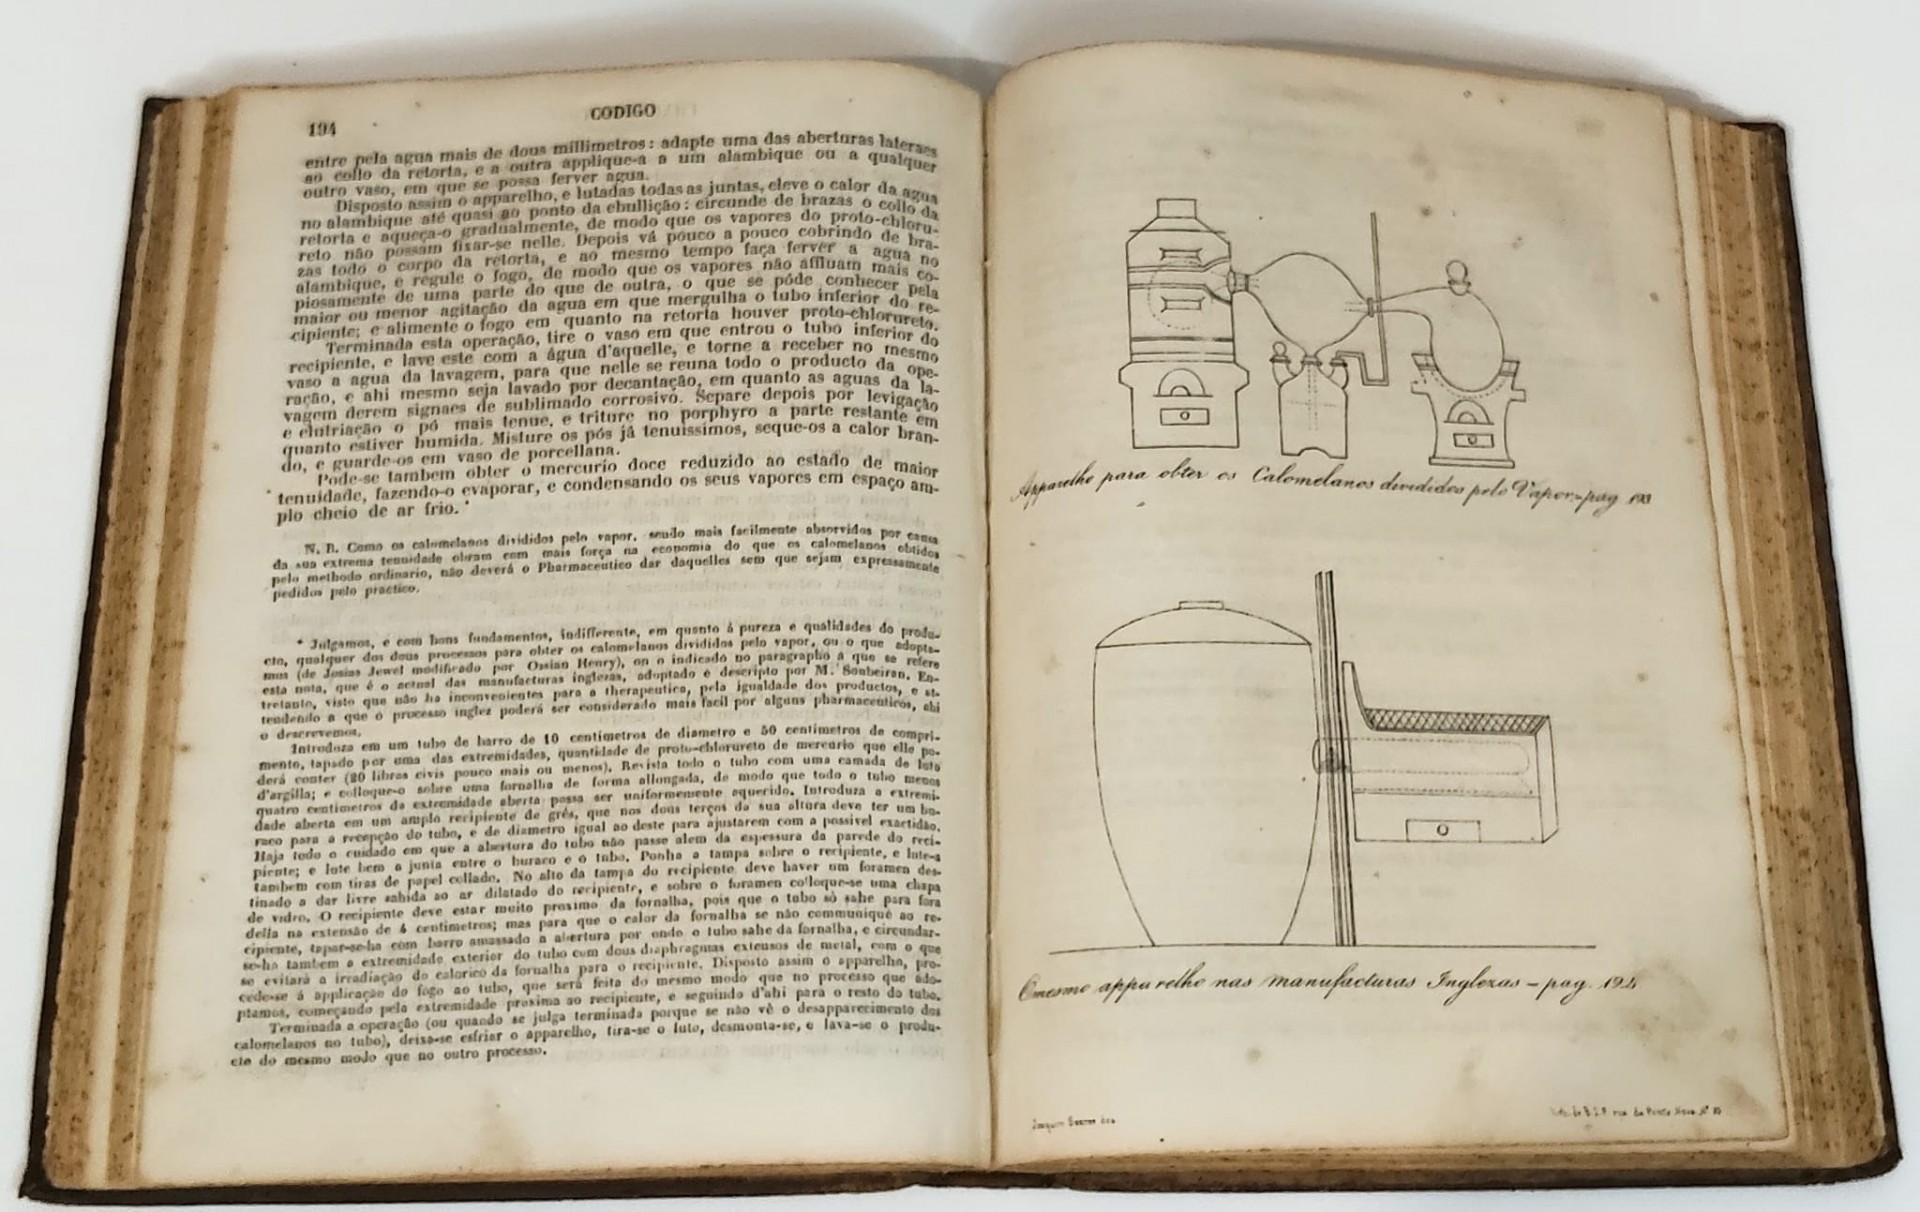 194
CODIGO
entre pela agua mais de dous millimetros : adapte uma das aberturas lateraes
ao collo da retorta, e a outra applique-a a um alambique ou a qualquer
outro vaso, em que se possa ferver agua.
Disposto assim o apparelho, e lutadas todas as juntas, eleve o calor da agua
no alambique até quasi ao ponto da ebullição : circunde de brazas o collo da
retorta e aqueça-o gradualmente, de modo que os vapores do proto-chloru-
reto não possam fixar-se nelle. Depois vá pouco a pouco cobrindo de bra-
zas todo o corpo da retorta, e ao mesmo tempo faça ferver a agua no
alambique, e regule o fogo, de modo que os vapores não affluam mais co-
piosamente de uma parte do que de outra, o que se póde conhecer pela
maior ou menor agitação da agua em que mergulha o tubo inferior do re-
cipiente; e alimente o fogo em quanto na retorta houver proto-chlorureto.
Terminada esta operação, tire o vaso em que entrou o tubo inferior do
recipiente, e lave este com a água d'aquelle, e torne a receber no mesmo
vaso a agua da lavagem, para que nelle se reuna todo o producto da ope-
ração, e ahi mesmo seja lavado por decantação, em quanto as aguas da la-
vagem derem signaes de sublimado corrosivo. Separe depois por levigação
e elutriação o pó mais tenue, e triture no porphyro a parte restante em
quanto estiver humida. Misture os pós já tenuissimos, seque-os a calor bran-
do, e guarde-os em vaso de porcellana.
Pode-se tambem obter o mercurio doce reduzido ao estado de maior
tenuidade, fazendo-o evaporar, e condensando os seus vapores em espaço am-
plo cheio de ar frio. *
N. B. Como os calomelanos divididos pelo vapor, sendo mais facilmente absorvidos por causa
da sua extrema tenuidade obram com mais força na economia do que os calomelanos obtidos
pelo methodo ordinario, não deverá o Pharmaceutico dar daquelles sem que sejam expressamente
pedidos pelo practico.
* Julgamos, e com bons fundamentos, indifferente, em quanto á pureza e qualidades do produ-
cto, qualquer dos dous processos para obter os calomelanos divididos pelo vapor, ou o que adopta-
mos (de Josias Jewel modificado por Ossian Henry), ou o indicado no paragrapho a que se refere
esta nota, que é o actual das manufacturas inglezas, adoptado e descripto por M. Soubeiran. En-
tretanto, visto que não ha inconvenientes para a therapeutica, pela igualdade dos productos, e at-
tendendo a que o processo inglez poderá ser considerado mais facil por alguns pharmaceuticos, ahi
o descrevemos.
Introduza em um tubo de barro de 10 centimetros de diametro e 50 centimetros de compri-
mento, tapado por uma das extremidades, quantidade de proto-chlorureto de mercurio que elle po-
derá conter (20 libras civis pouco mais ou menos). Revista todo o tubo com uma camada de luto
d'argilla; e colloque-o sobre uma fornalha de forma allongada, de modo que todo o tubo menos
quatro centimetros da extremidade aberta possa ser uniformemente aquecido. Introduza a extremi-
dade aberta em um amplo recipiente de grés, que nos dous terços da sua altura deve ter um bu-
raco para a recepção do tubo, e de diametro igual ao deste para ajustarem com a possivel exactidão.
Haja todo o cuidado em que a abertura do tubo não passe alem da espessura da parede do reci-
piente; e lute bem a junta entre o buraco e o tubo. Ponha a tampa sobre o recipiente, e lute-a
tambem com tiras de papel collado. No alto da tampa do recipiente deve haver um foramen des-
tinado a dar livre sahida ao ar dilatado do recipiente, e sobre o foramen colloque-se uma chapa
de vidro. O recipiente deve estar muito proximo da fornalha, pois que o tubo só sahe para fora
della na extensão de 4 centimetros; mas para que o calor da fornalha se não communique ao re-
cipiente, tapar-se-ha com barro amassado a abertura por onde o tubo sahe da fornalha, e circundar-
se-ha tambem a extremidade exterior do tubo com dous diaphragmas extensos de metal, com o que
se evitará a irradiação do calorico da fornalha para o recipiente. Disposto assim o apparelho, pro-
cede-se á applicação do fogo ao tubo, que será feita do mesmo modo que no processo que ado-
ptamos, começando pela extremidade proxima ao recipiente, e seguindo d'ahi para o resto do tubo.
Terminada a operação (ou quando se julga terminada porque se não vê o desapparecimento dos
calomelanos no tubo), deixa-se esfriar o apparelho, tira-se o luto, desmonta-se, e lava-se o produ-
cto do mesmo modo que no outro processo.
Apparelho para obter os Calomelanos divididos pelo Vapor=pag 193
O mesmo apparelho nas manufacturas Inglezas - pag. 194
Joaquim Soares
rua da Nova Nº